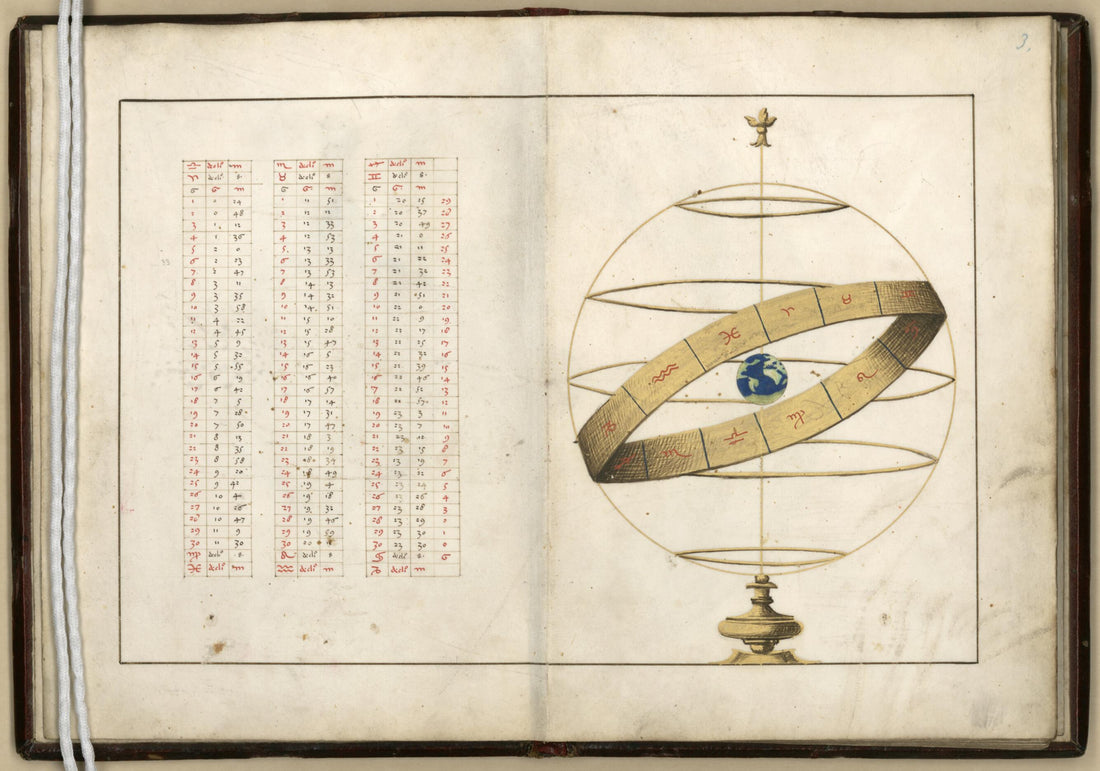 3,
♎ decli° m ♏ decli° m ♐ decli° m
♈ decli° s ♉ decli° s ♊ decli° s
G G m G G m G G m
1 0 24 1 11 51 1 20 25 29
2 0 48 2 12 12 2 20 37 28
3 1 12 3 12 33 3 20 49 27
4 1 36 4 12 53 4 21 0 26
5 2 0 5 13 13 5 21 11 25
6 2 23 6 13 33 6 21 22 24
7 2 47 7 13 53 7 21 32 23
8 3 11 8 14 13 8 21 42 22
9 3 35 9 14 32 9 21 51 21
10 3 58 10 14 51 10 22 0 20
11 4 22 11 15 10 11 22 9 19
12 4 45 12 15 28 12 22 17 18
13 5 9 13 15 47 13 22 25 17
14 5 32 14 16 5 14 22 32 16
15 5 55 15 16 23 15 22 39 15
16 6 19 16 16 40 16 22 46 14
17 6 42 17 16 57 17 22 52 13
18 7 5 18 17 14 18 22 57 12
19 7 28 19 17 31 19 23 3 11
20 7 50 20 17 47 20 23 7 10
21 8 13 21 18 3 21 23 12 9
22 8 35 22 18 19 22 23 15 8
23 8 58 23 18 34 23 23 19 7
24 9 20 24 18 49 24 23 22 6
25 9 42 25 19 4 25 23 24 5
26 10 4 26 19 18 26 23 26 4
27 10 26 27 19 32 27 23 28 3
28 10 47 28 19 46 28 23 29 2
29 11 9 29 19 59 29 23 30 1
30 11 30 30 20 12 30 23 30 0
♍ decli° s ♌ decli° s ♋ decli° s G
♓ decli° m ♒ decli° m ♑ decli° m